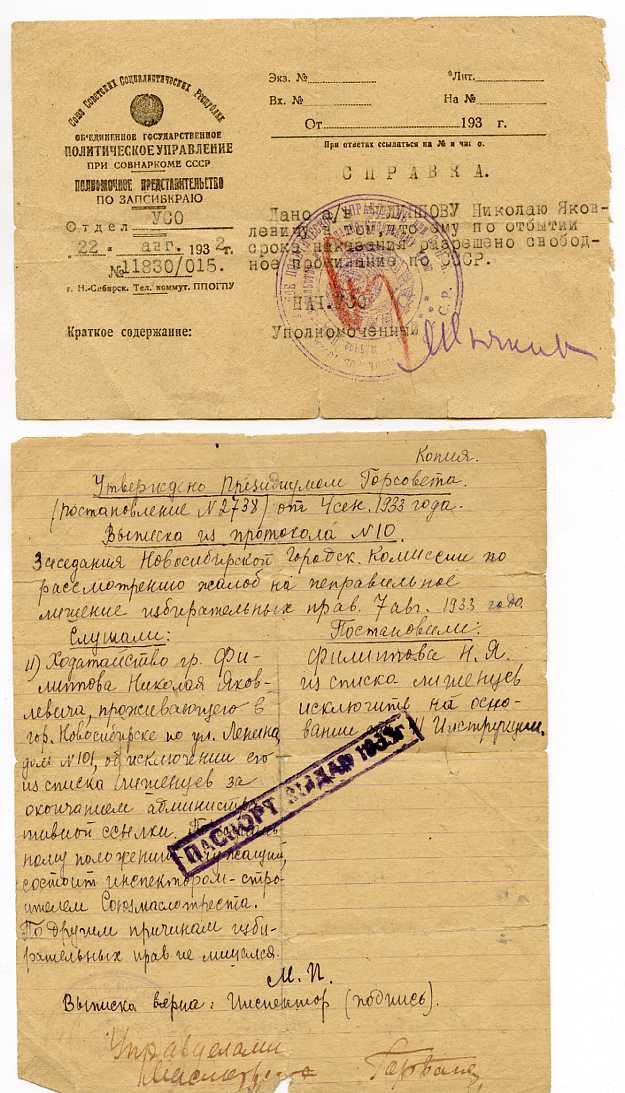 Союз Советских Социалистических Республик
ОБЪЕДИНЕННОЕ ГОСУДАРСТВЕННОЕ
ПОЛИТИЧЕСКОЕ УПРАВЛЕНИЕ
ПРИ СОВНАРКОМЕ СССР
ПОЛНОМОЧНОЕ ПРЕДСТАВИТЕЛЬСТВО
ПО ЗАПСИБКРАЮ
Отдел УСО
"22" авг. 1932 г.
№ 11830/015.
г. Н.-Сибирск. Тел. коммут. ППОГПУ
Краткое содержание:
Экз. № Лит.
Вх. № На №
От 193 г.
При ответах ссылаться на № и число.
СПРАВКА.
Дано а/в ФИЛИППОВУ Николаю Яков-
левичу в том, что ему по отбытии
срока наказания разрешено свобод-
ное проживание по СССР.
НАЧ.УСО
Уполномоченный
Копия.
Утверждено Президиумом Горсовета.
(постановление №2738) от 4 сен. 1933 года.
Выписка из протокола №10.
Заседания Новосибирской Городск. Комиссии по
рассмотрению жалоб на неправильное
лишение избирательных прав. 7 авг. 1933 года
Слушали:
11) Ходатайство гр. Фи-
липпова Николая Яков-
левича, проживающего в
гор. Новосибирске по ул. Ленина,
дом №101, об исключении его
из списка лишенцев за
окончанием админист
тивной ссылки.
ному положению служащий,
состоит инспектором-стро-
ителем Союзмаслотреста.
По другим причинам изби-
рательных прав не лишался.
Постановили:
Филиппова Н.Я.
из списка лишенцев
исключить на осно-
вании Инструкции.
ПАСПОРТ ВЫДАН 1933 г.
М.П.
Выписка верна: Инспектор (подпись).
Управделами